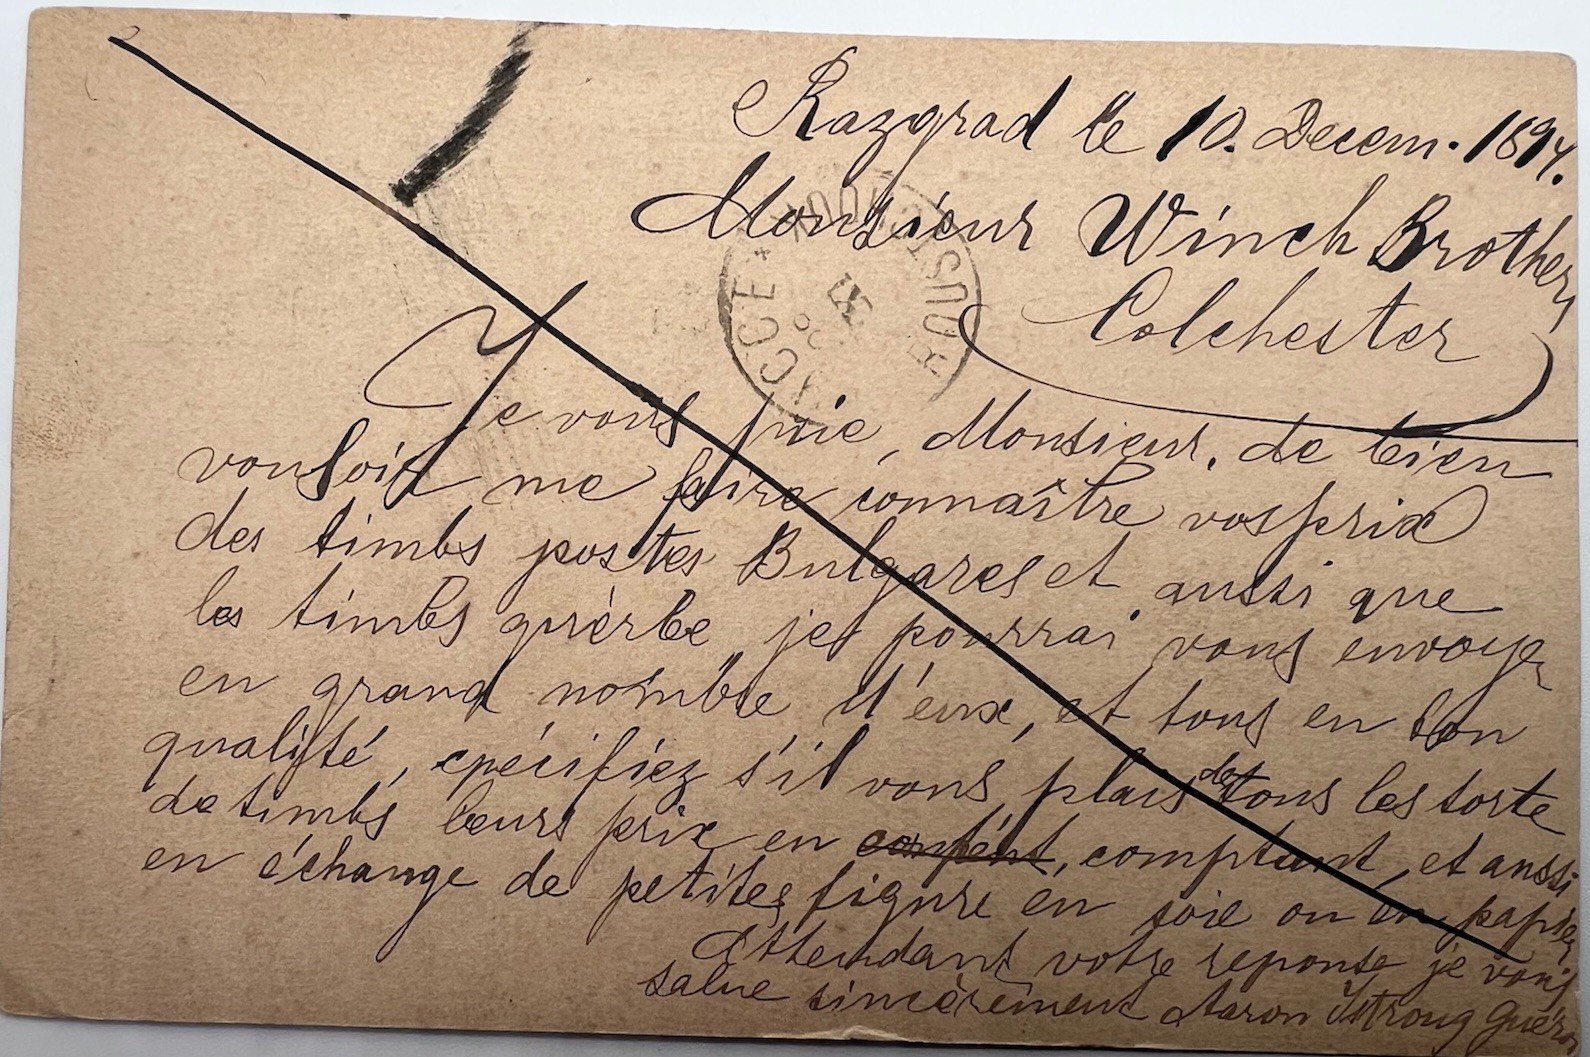 Razgrad le 10. Decem. 1894.
Monsieur Winch Brothers
Colchester
ROUSTCHOUK
Je vous prie, Monsieur, de bien
vouloir me faire connaître vos prix
des timbs postes Bulgares et aussi que
les timbs je pourrai vous envoyer
en grand nombre d'eux, et tous en bon
qualité, cpécifiez s'il vous plais de tous les sorte
de timbs leurs prix en comptant, et aussi
en échange de petites figure en soie ou en papier
Attendant votre reponse je vous
salue sincèrement Aaron